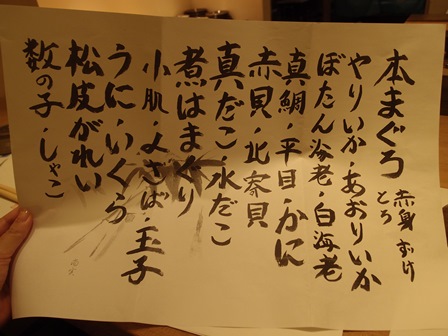 本まぐろ 赤身 づけ とろ
やりいか・あおりいか
ぼたん海老・白海老
真鯛・平目・かに
赤貝・北寄貝
真だこ・水だこ
煮はまぐり
小肌・〆さば・玉子
うに・いくら
松皮がれい
数の子・しゃこ